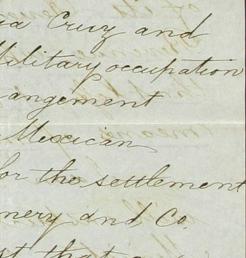 ua Cruz and
Military occupation
angement
Mexican
for the settlement
nery and Co.
st that